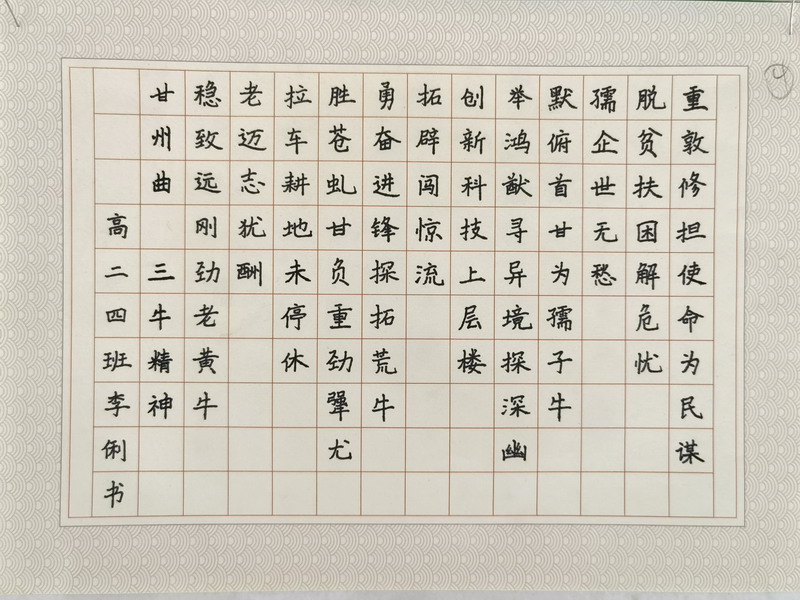 重敦修担使命为民谋
脱贫扶困解危忧
孺企世无愁
默俯首甘为孺子牛
举鸿猷寻异境探深幽
创新科技上层楼
拓辟闯惊流
勇奋进锋探拓荒牛
胜苍虬甘负重劲犟尤
拉车耕地未停休
老迈志犹酬
稳致远刚劲老黄牛
甘州曲 三牛精神
高二四班李俐书